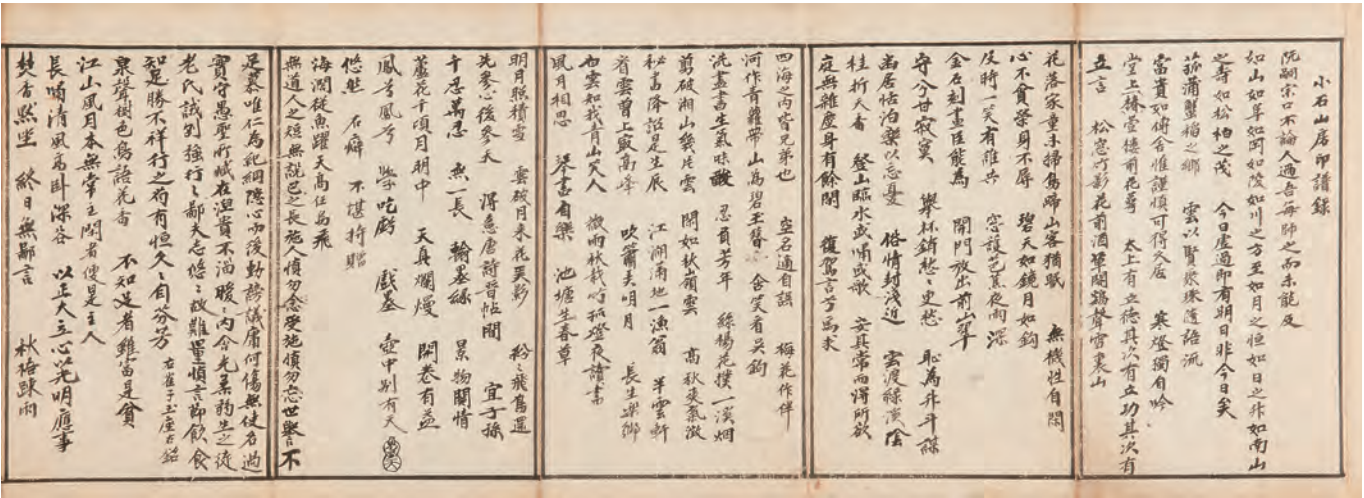 小石山房印譜錄
阮嗣宗口不論人過吾每師之而未能及
如山如阜如岡如陵如川之方至如月之恒如日之升如南山
之壽如松柏之茂　今日虛過即有明日非今日矣
菰蒲蟹稻之鄉　雲以賢原珠隨語流
富貴如傳舍惟謹慎可得久居　寒燈獨自吟
堂上椿萱樓前花萼　太上有立德其次有立功其次有
立言　松窓竹影花前酒　鶴聲雪裏山
花落家童未掃鳥啼山客猶眠　無機性自閒
心不貪榮身不辱　碧天如鏡月如鈎
及時一笑有誰共　窓護芭蕉夜雨深
金石刻畫臣能為　開門放出前山翠
守分甘寂寞　舉杯銷愁愁更愁　恥為升斗謀
幽居恬泊樂以忘憂　俗情封淺近　雲渡綠溪陰
桂折天香　登山臨水或嘯或歌　安其常而得所欲
庭無雜塵身有餘閒　復駕言兮焉求
四海之內皆兄弟也　空名適自誤　梅花作伴
河作青羅帶山為碧玉簪　含笑看吳鈎
洗盡書生氣味酸　忍負芳年　絲楊花撲一溪烟
剪破湘山幾片雲　閒如秋嶺雲　高秋爽氣澂
秘書降詔是生辰　江湖滿地一漁翁　半雲軒
看雲曾上最高峰　吹簫美明月　長生樂鄉
白雲如我青山笑人　微雨秋栽竹孤燈夜讀書
風月相思　琴書自樂　池塘生春草
明月照積雪　雲破月來花弄影　紛紛飛鳥還
先參心後參天　得意唐詩晉帖間　宜子孫
十忍萬忍　無一長　翰墨緣　景物關情
蘆花千頃月明中　天真爛熳　開卷有益
鳳兮鳳兮　學吃虧　戲墨　壺中別有天
悠然　石癖　不堪持贈
海濶從魚躍天高任鳥飛
無道人之短無說己之長施人慎勿念受施慎勿忘世譽不
足慕唯仁為紀綱隱心而後動謗議庸何傷無使名過
實守愚聖所臧在涅貴不淄曖曖內含光柔弱生之徒
老氏誡剛強行行鄙夫志悠悠故難量慎言節飲食
知足勝不祥行之苟有恒久久自芬芳　右崔子玉座右銘
泉聲樹色鳥語花香　不知足者雖富是貧
江山風月本無常主閒者便是主人
長嘯清風高卧深谷　以正大立心以光明應事
焚香默坐　終日無鄙言　秋梧踈雨